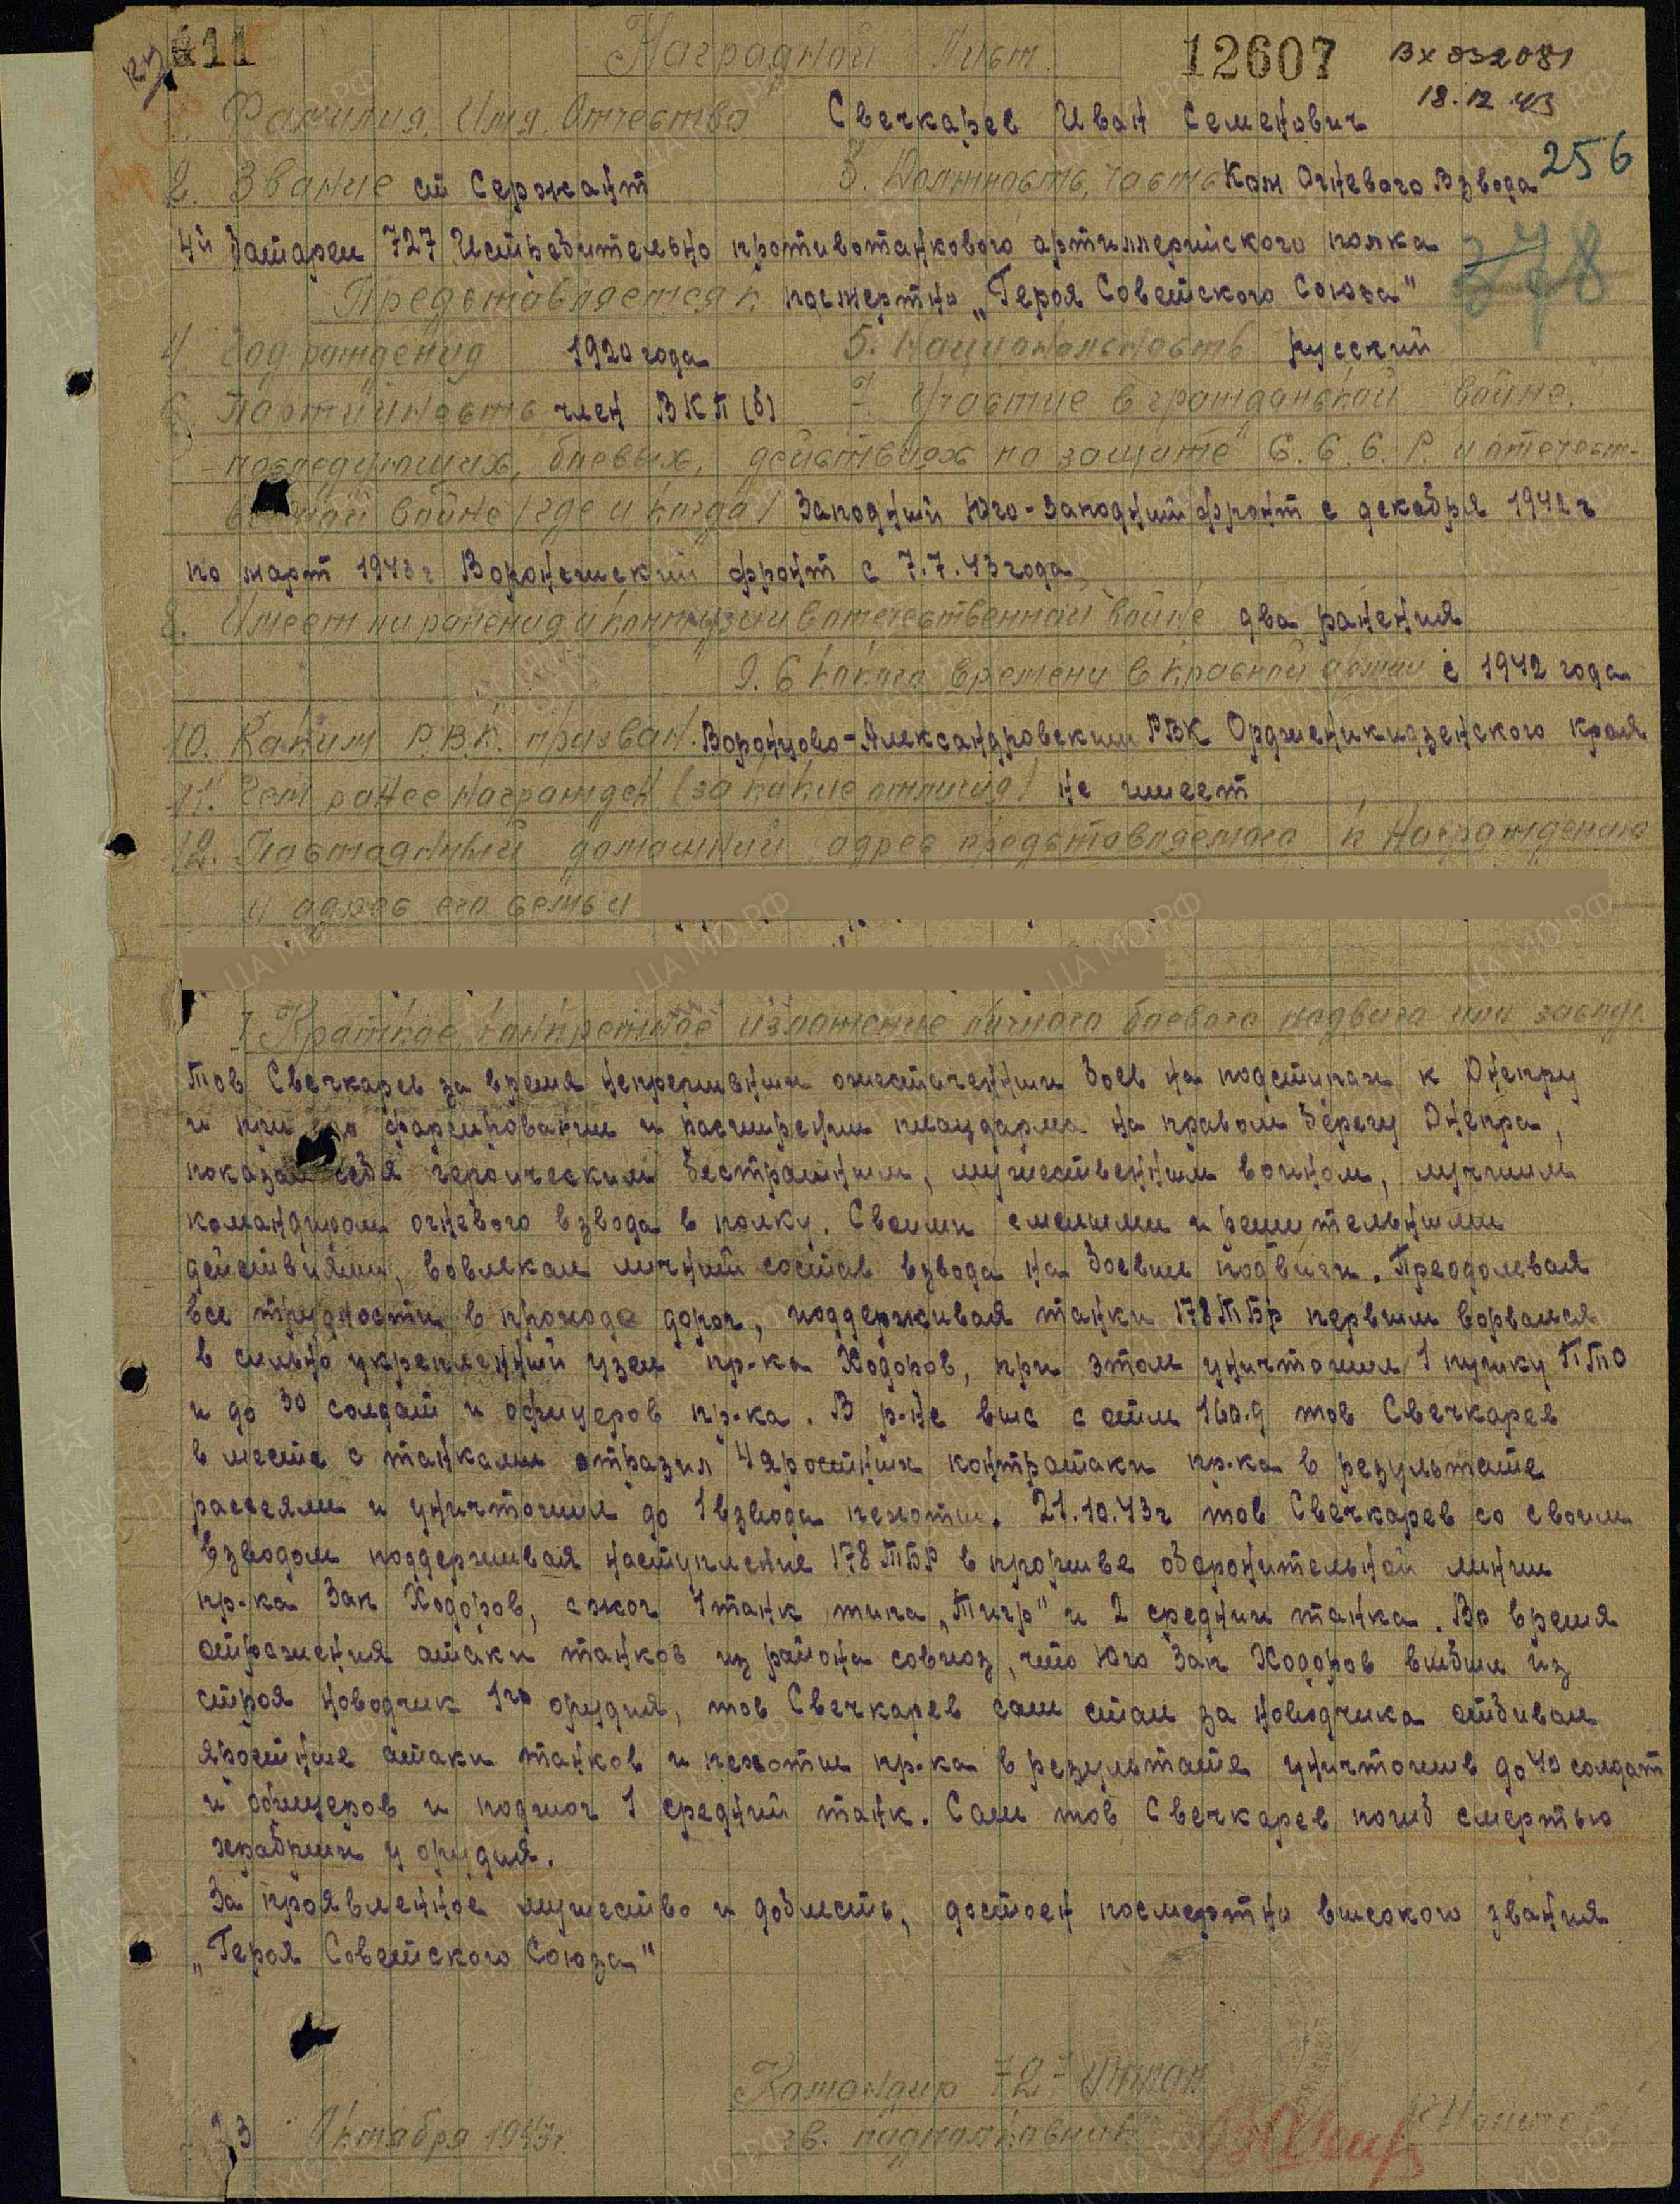 411 Наградной Лист. 12607 Вх 032081
18.12.43
1. Фамилия, Имя, Отчество Свечкарев Иван Семенович
256
2. Звание ст Сержант 3. Должность, часть Ком Огневого Взвода
4й батареи 727 Истребительно противотанкового артиллерийского полка
378
Представляется к посмертно „Героя Советского Союза"
4. Год рождения 1920 года 5. Национальность русский
6. Партийность член ВКП(б) 7. Участие в гражданской войне,
последующих, боевых, действиях по защите С.С.С.Р. и отечест-
венной войне (где и когда) Западний Юго-Западний фронт с декабря 1942 г
по март 1943 г Воронежский фронт с 7.7.43 года
8. Имеет ли ранения и контузии в отечественной войне два ранения
9. С какого времени в Красной армии с 1942 года
10. Каким Р.В.К. призван. Воронцово-Александровским РВК Орджоникидзенского края
11. Чем ранее награжден (за какие отличия) не имеет
12. Постоянный домашний адрес представляемого к награждению
и адрес его семьи
I Краткое, конкретное изложение личного боевого подвига или заслуг.
Тов Свечкарев за время непреривних ожесточенних боев на подступах к Днепру
и при его форсировании и расширении плацдарма на правом берегу Днепра,
показал себя героическим бестрашним, мужественним воином, лучшим
командиром огневого взвода в полку. Своими смелими и решительними
действиями, вовлекал личний состав взвода на боевие подвиги. Преодолевая
все трудности в проходе дорог, поддерживая танки 178 ТБр первим ворвался
в сильно укрепленний узел пр-ка Ходоров, при этом уничтожил 1 пушку ПТО
и до 30 солдат и офицеров пр-ка. В р-не выс с отм 160.9 тов Свечкарев
вместе с танками отразил 4 яростних контратаки пр-ка в результате
рассеяли и уничтожил до 1 взвода пехоти. 21.10.43 г тов Свечкарев со своим
взводом поддерживая наступление 178 ТБР в прориве оборонительной линии
пр-ка Зап Ходоров, сжог 1 танк типа „Тигр" и 2 средних танка. Во время
отражения атаки танков из района совхоз, что Юго Зап Ходоров вибил из
строя наводчик 1го орудия, тов Свечкарев сам стал за наводчика отбивал
яростние атаки танков и пехоти пр-ка в результате уничтожив до 40 солдат
и офицеров и поджог 1 средний танк. Сам тов Свечкарев погиб смертью
храбрих у орудия.
За проявленное мужество и доблесть, достоен посмертно високого звания
„Героя Советского Союза"
Командир 727 Иптап
23 Октября 1943 г. гв. подполковник